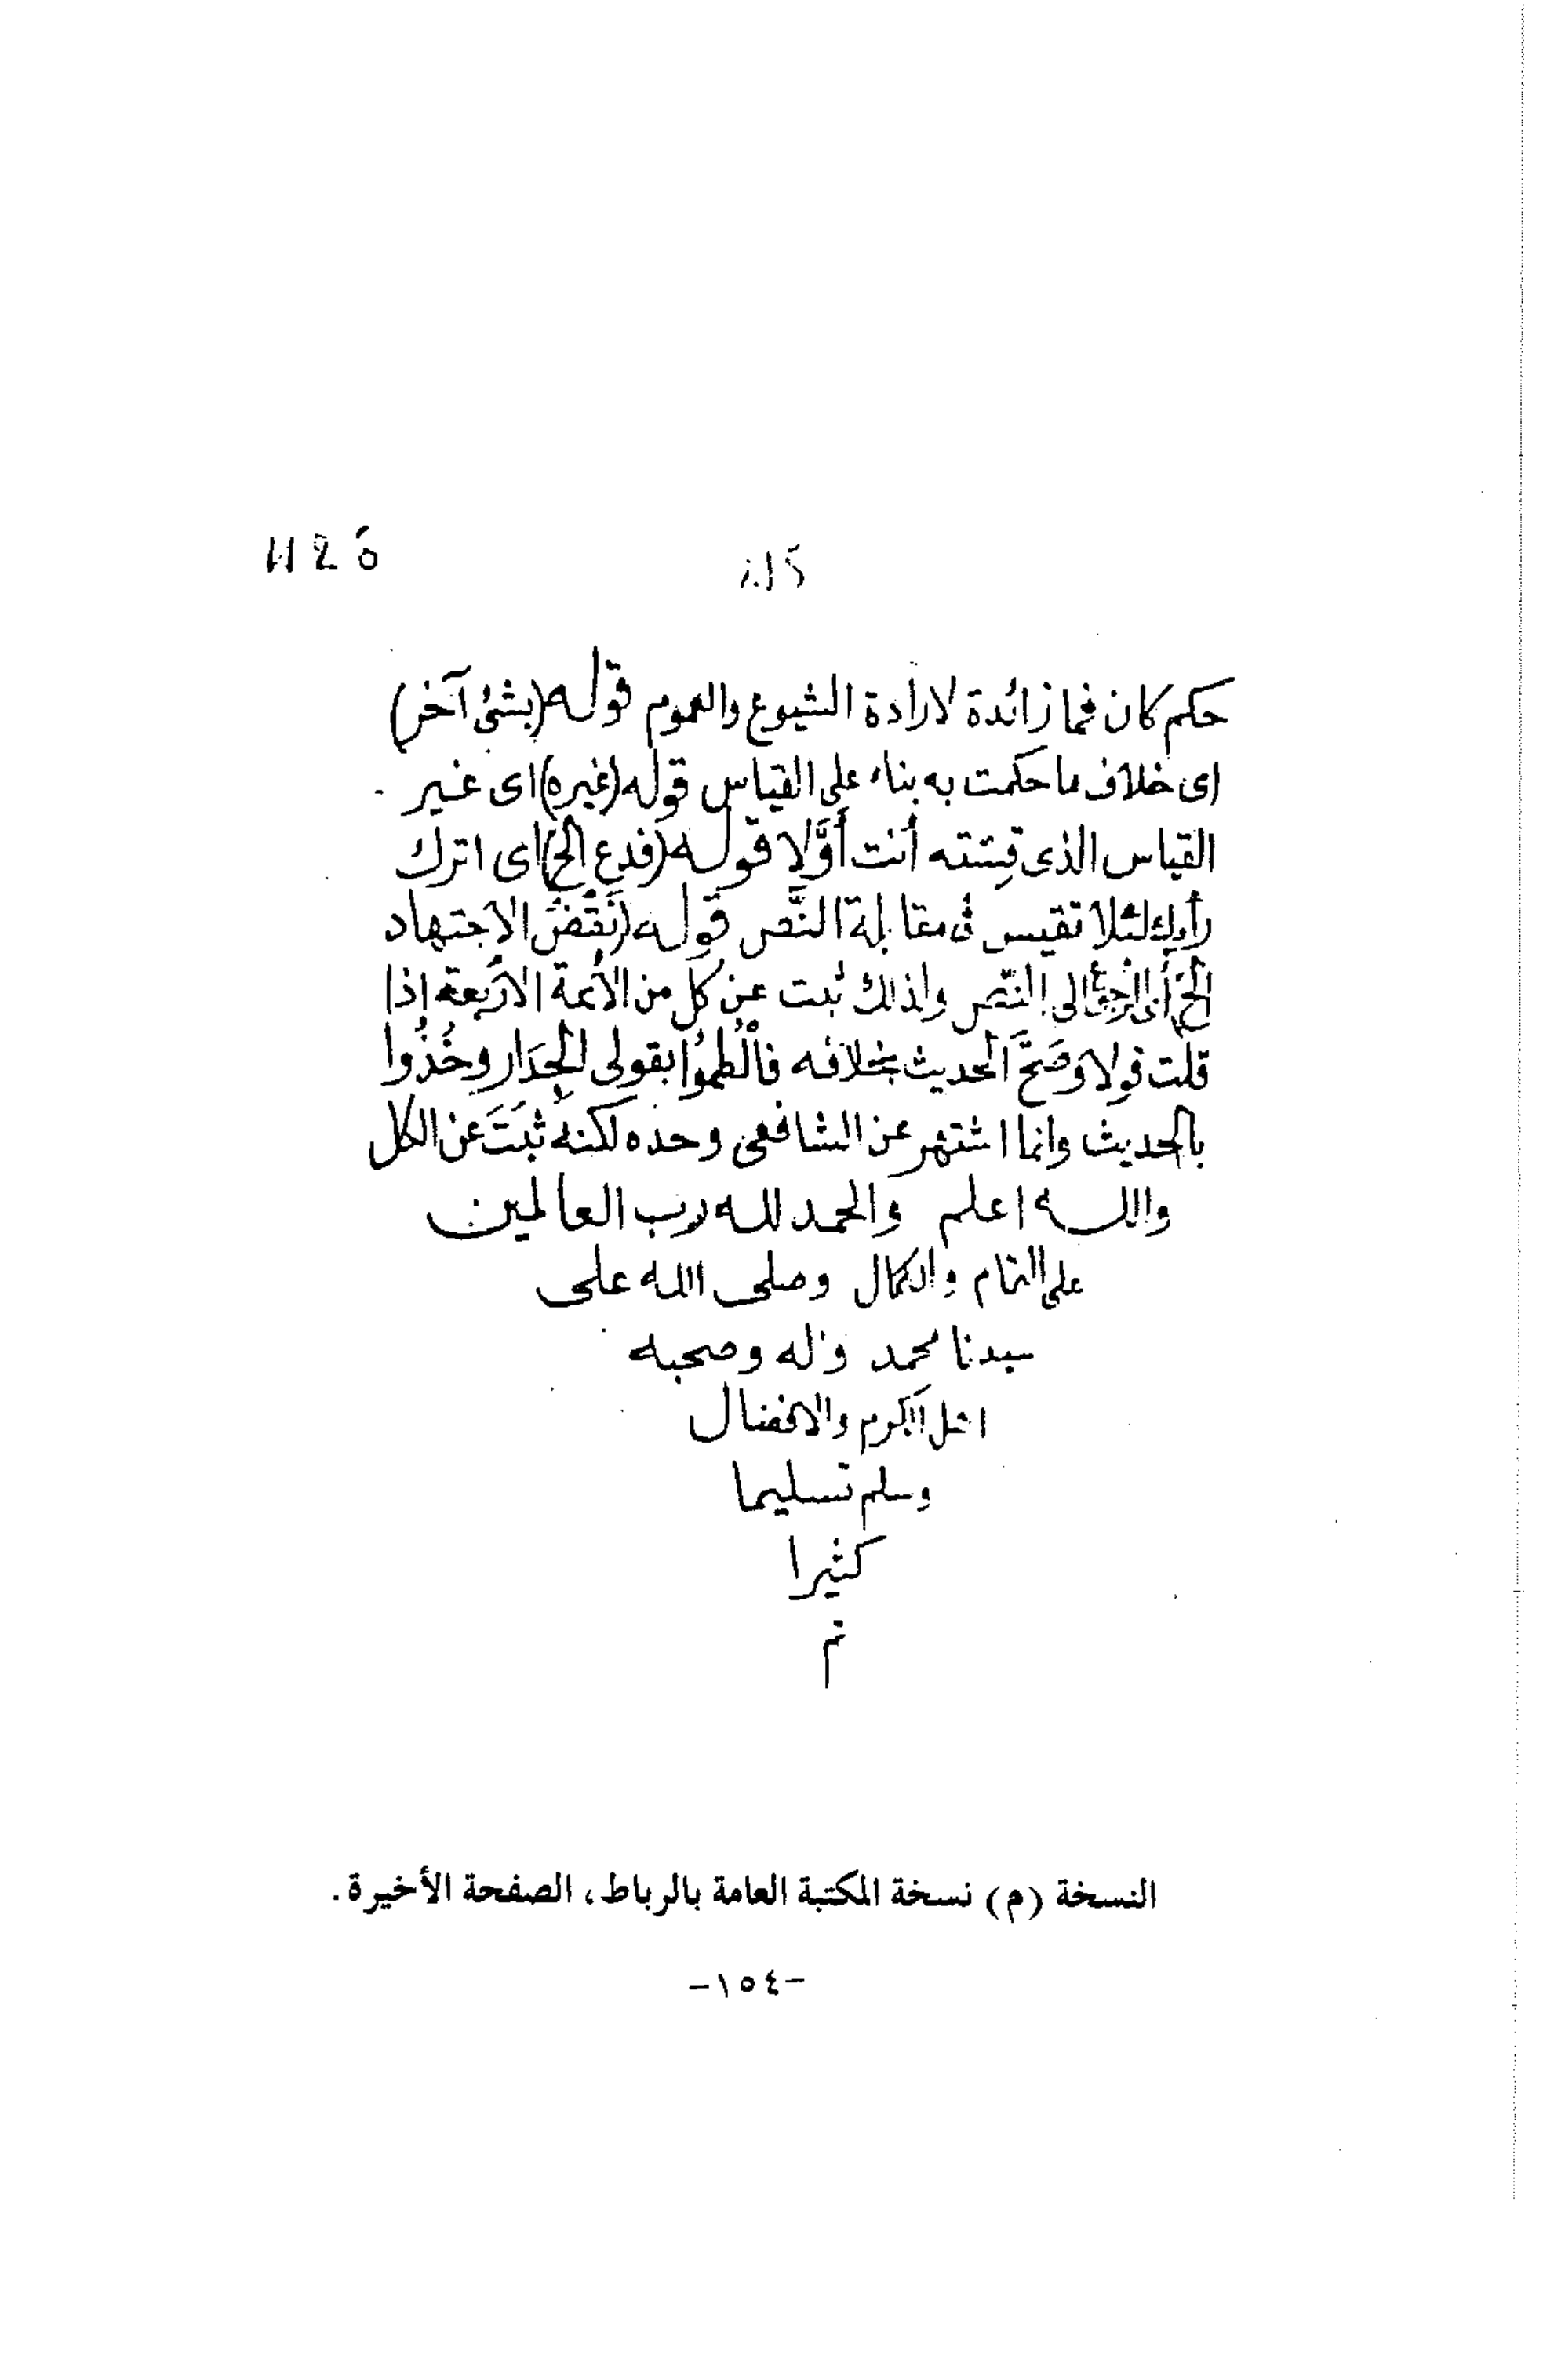 حكم كان فما زائدة لارادة الشيوع والعموم قوله (بشئ آخر)
اى خلاف ما حكمت به بناء على القياس قوله (غيره) اى غير
القياس الذى قسته أنت أوَّلا قوله (فدع الخ) اى اترك
رأيك لئلا تقيس فى مقابلة النَّص قوله (نَقْضُ الاجتهاد
الخ) أى الرجوع الى النَّص ولذلك ثبت عن كل من الأئمة الأربعة إذا
قلت قولا وصَحَّ الحديث بخلافه فالْطموُا بقولى الجِدَار وخُذُوا
بالحديث وانما اشتهر عن الشافعى وحده لكنهُ ثبَتَ عن الكل
والله اعلم والحمد لله رب العالمين
على التمام والكمال وصلى الله على
سيدنا محمد وآله وصحبه
اهل الكرم والافضال
وسلم تسليما
كثيرا
تم
النسخة (م) نسخة المكتبة العامة بالرباط، الصفحة الأخيرة.
-١٥٤-